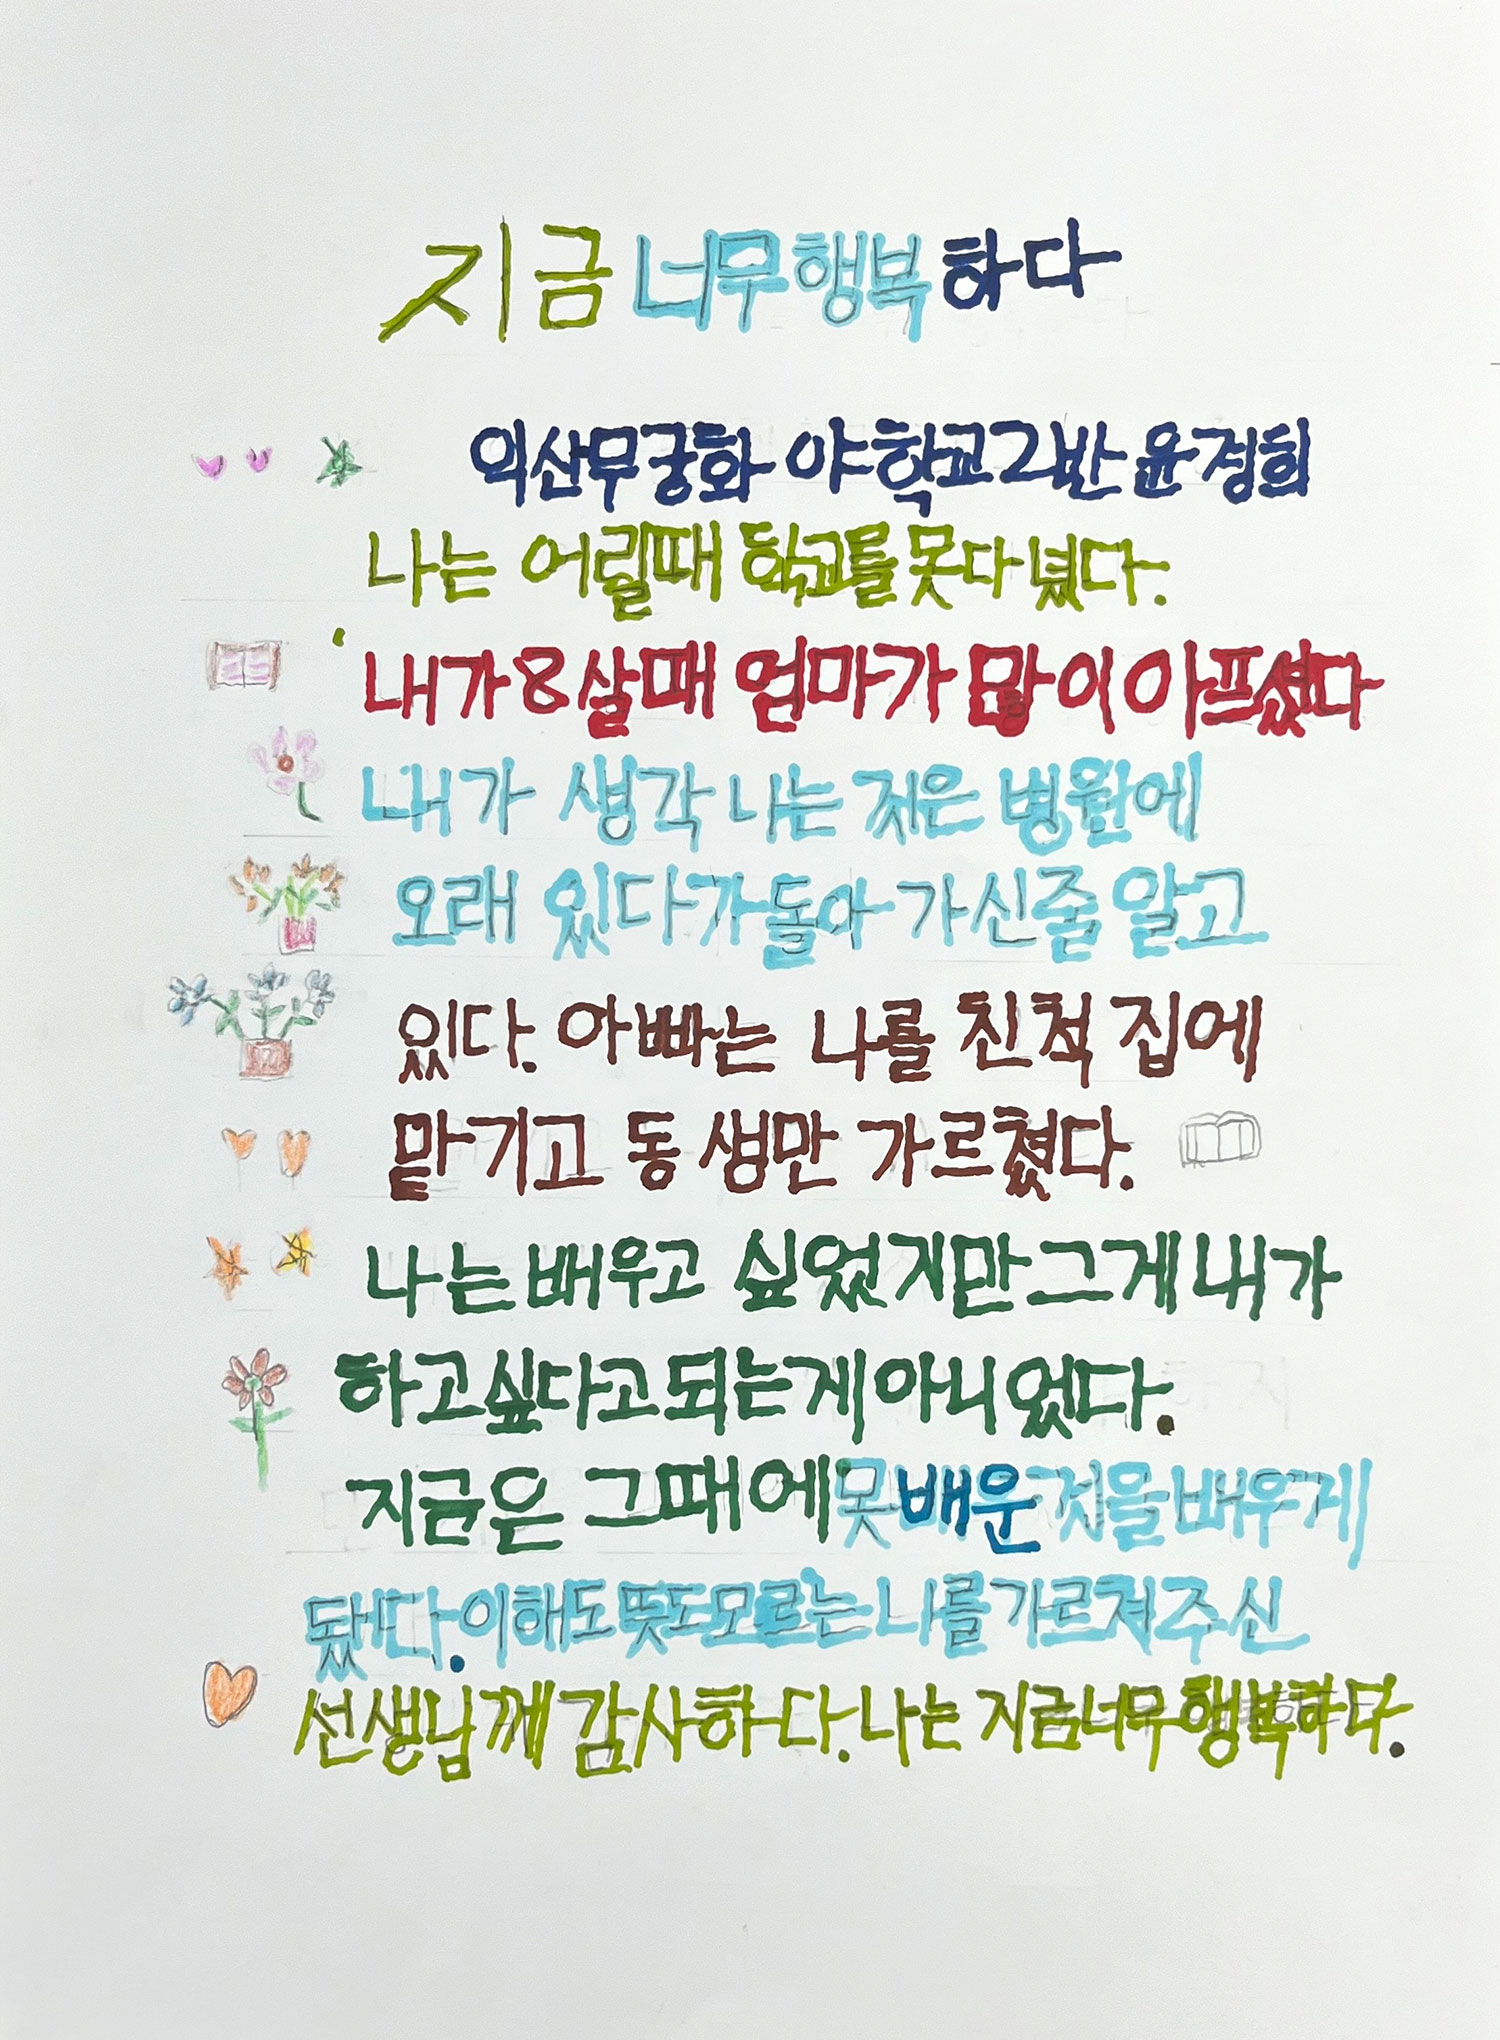 지금 너무 행복하다
익산무궁화 야학교 2반 윤경희
나는 어릴때 학교를 못다녔다.
내가 8살때 엄마가 많이 아프셨다
내가 생각나는 저은 병원에
오래 있다가 돌아가신줄 알고
있다. 아빠는 나를 친척 집에
맡기고 동생만 가르쳤다.
나는 배우고 싶었지만 그게 내가
하고싶다고 되는게 아니었다.
지금은 그때에 못배운 것을 배우게
됐다. 이해도 뜻도 모르는 나를 가르쳐주신
선생님께 감사하다. 나는 지금 너무 행복하다.